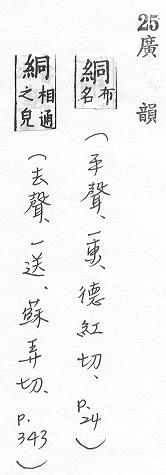 25廣韻
絧布名(平聲、一東、德紅切、p.24)
絧相通之皃(去聲、一送、蘇弄切、p.343)